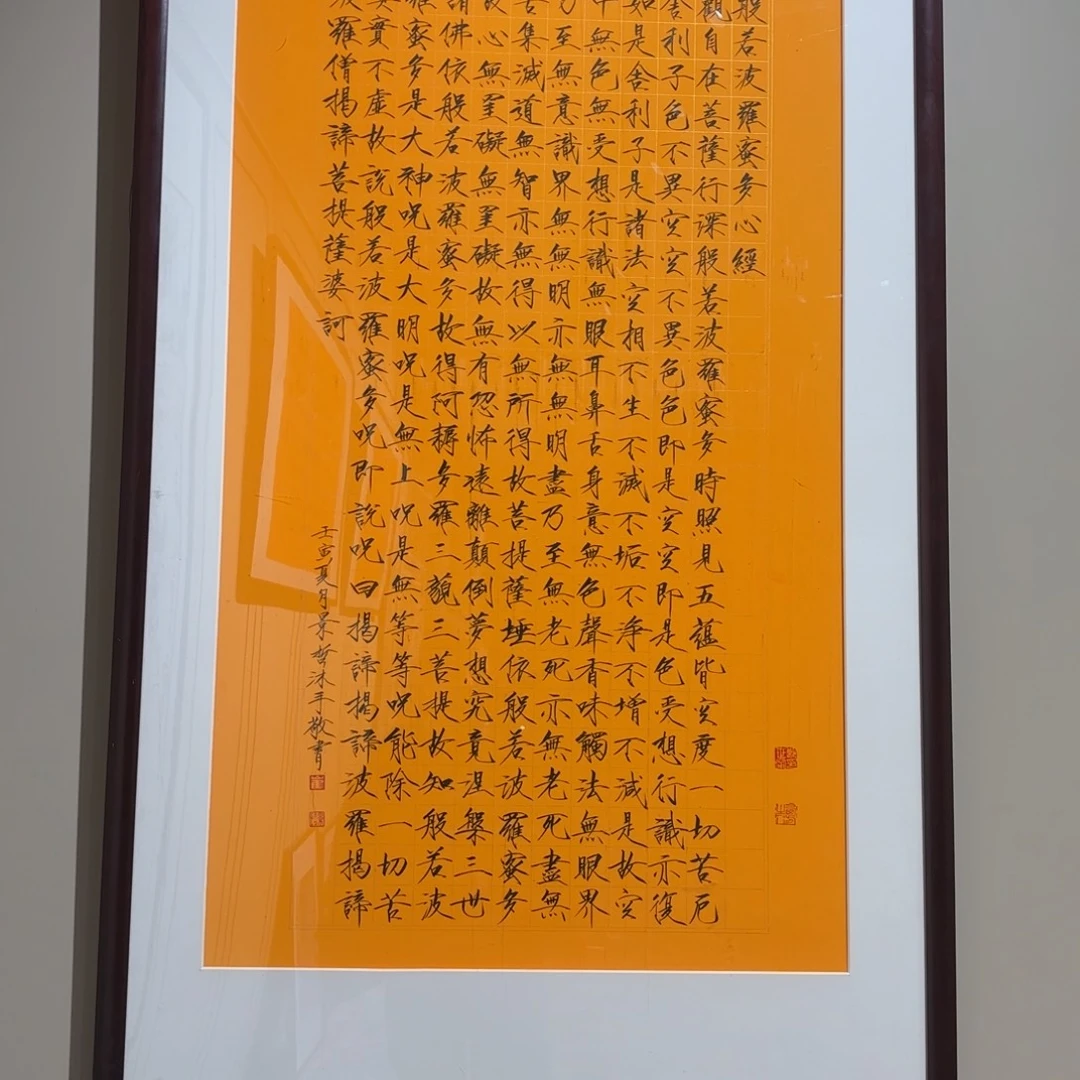 般若波羅蜜多心經
觀自在菩薩行深般若波羅蜜多時照見五蘊皆空度一切苦厄
舍利子色不異空空不異色色即是空空即是色受想行識亦復
如是舍利子是諸法空相不生不滅不垢不淨不增不減是故空
中無色無受想行識無眼耳鼻舌身意無色聲香味觸法無眼界
乃至無意識界無無明亦無無明盡乃至無老死亦無老死盡無
苦集滅道無智亦無得以無所得故菩提薩埵依般若波羅蜜多
故心無罣礙無罣礙故無有恐怖遠離顛倒夢想究竟涅槃三世
諸佛依般若波羅蜜多故得阿耨多羅三藐三菩提故知般若波
羅蜜多是大神呪是大明呪是無上呪是無等等呪能除一切苦
真實不虛故說般若波羅蜜多呪即說呪曰揭諦揭諦波羅揭諦
波羅僧揭諦菩提薩婆訶
壬寅夏月景哲沐手敬書